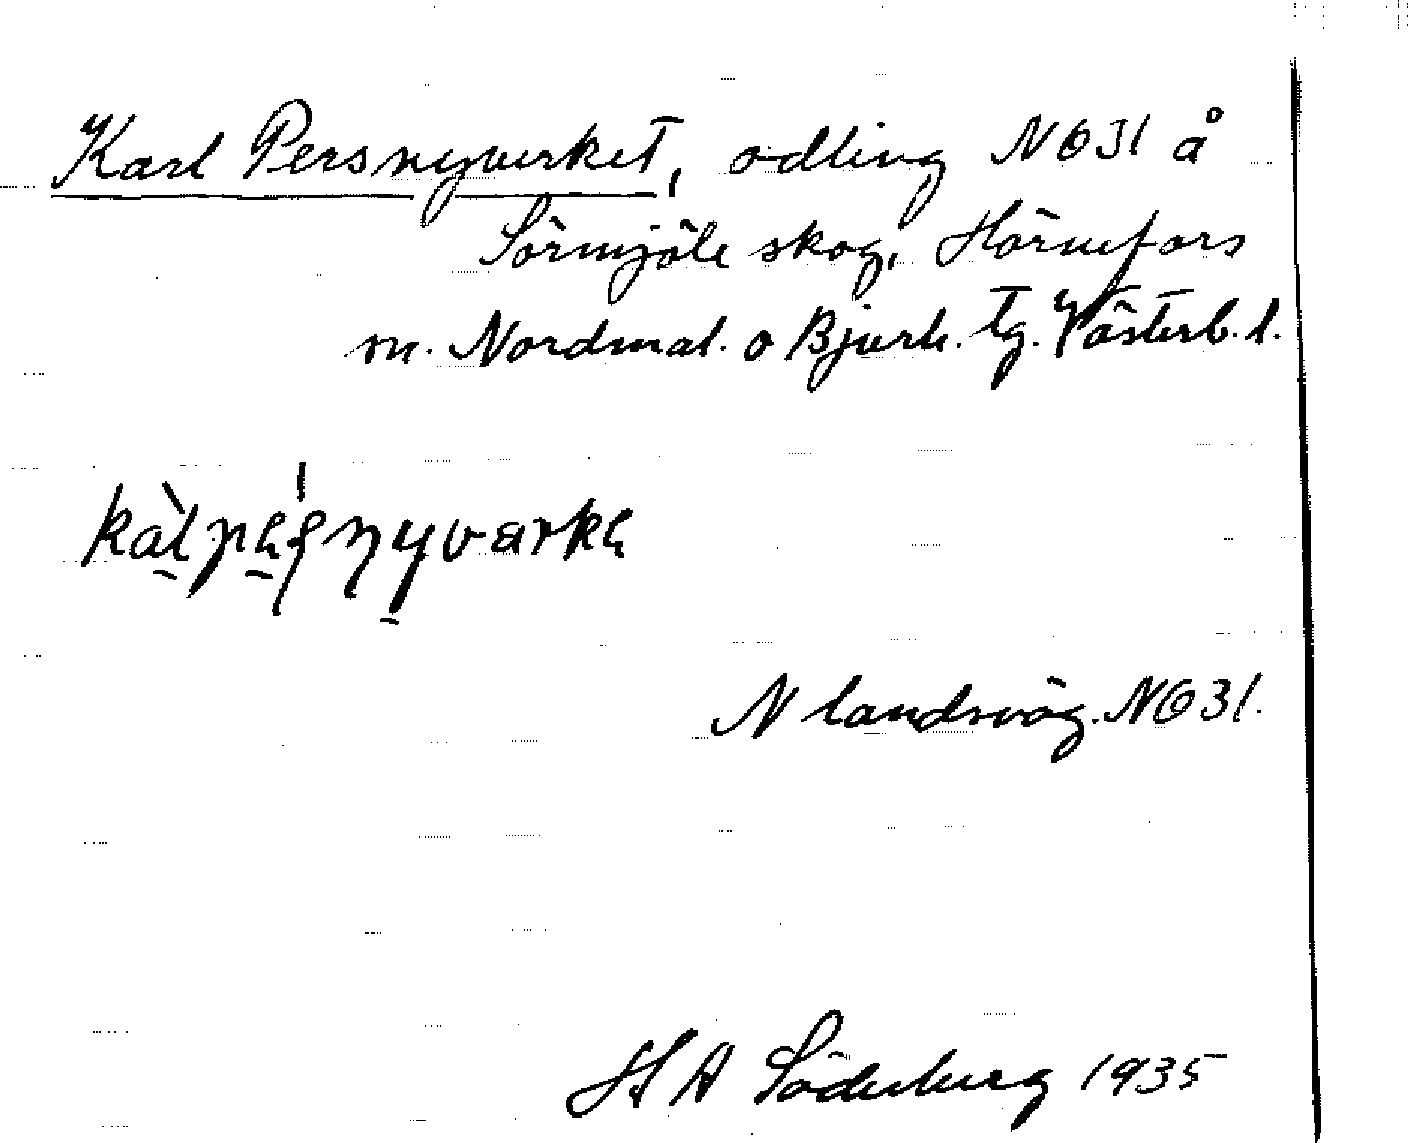 Karl Persnyverket, odling NO31 å
Sörmjöle skog, Hörnefors
m. Nordmal. o Bjurh. tg. Västerb. l.
N landsväg. NO31.
H A Söderberg 1935